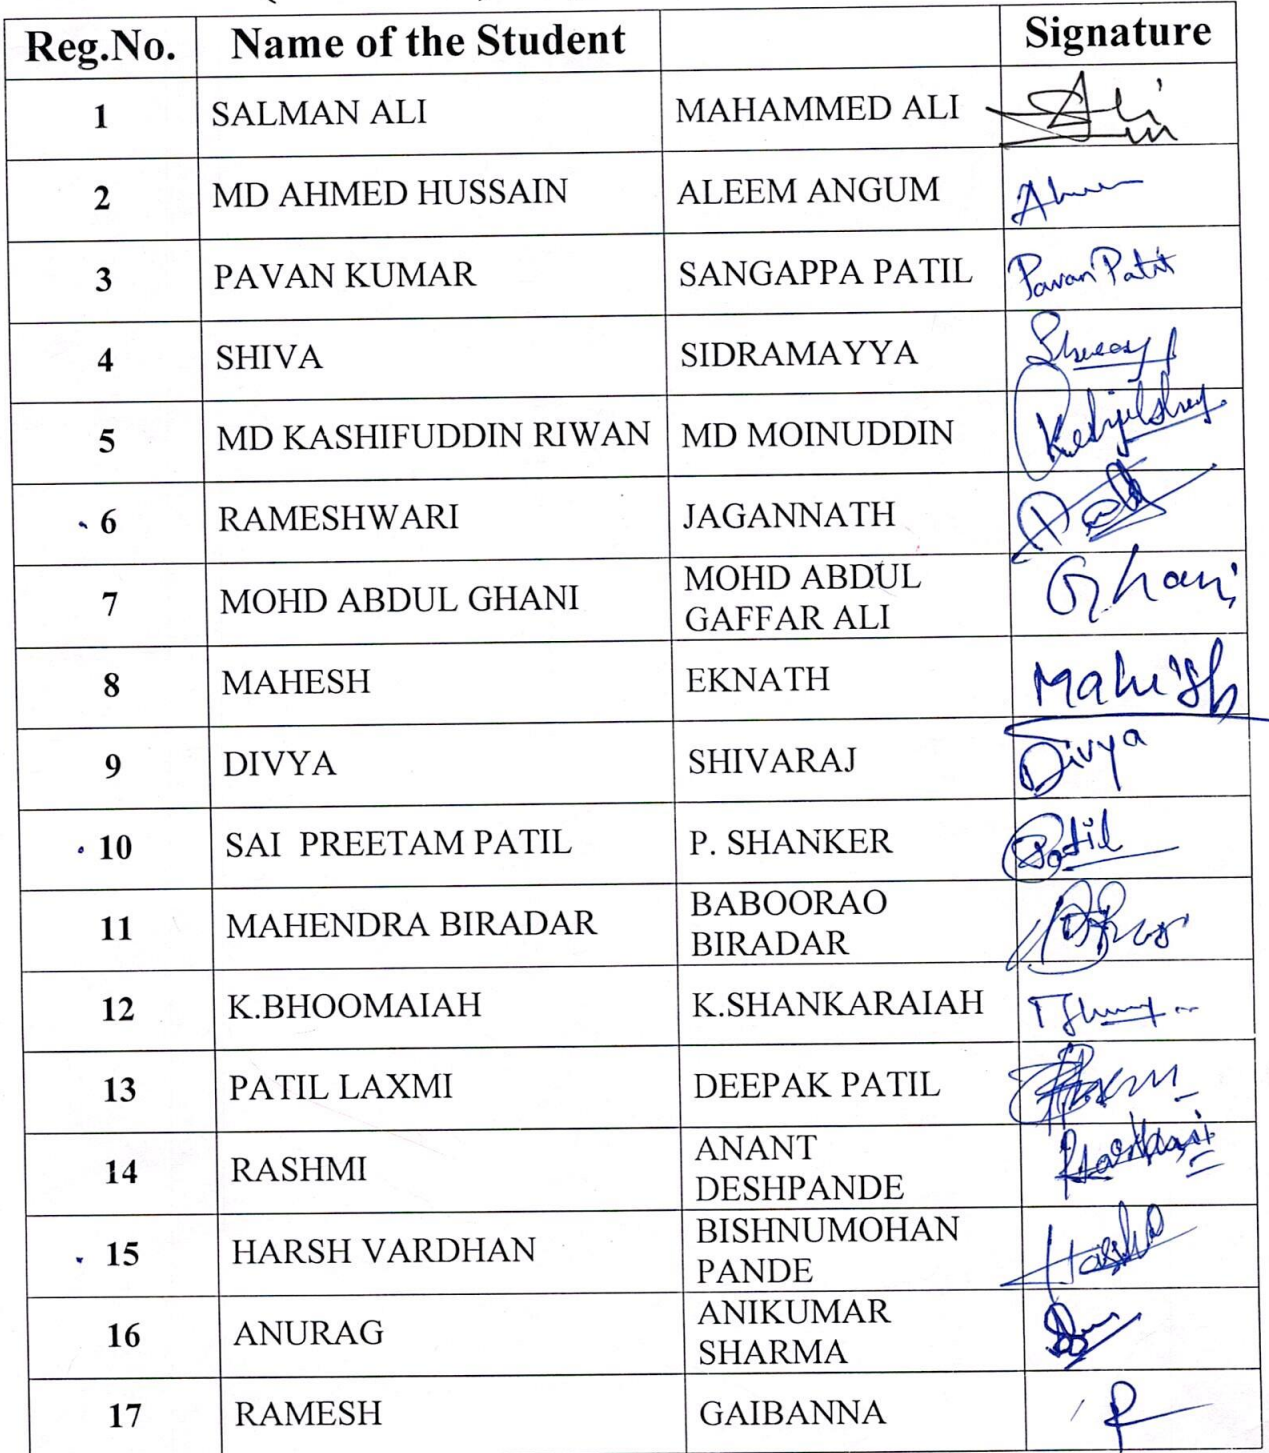 Reg.No. Name of the Student Signature
1 SALMAN ALI MAHAMMED ALI Ali
2 MD AHMED HUSSAIN ALEEM ANGUM
3 PAVAN KUMAR SANGAPPA PATIL Pavan Patil
4 SHIVA SIDRAMAYYA
5 MD KASHIFUDDIN RIWAN MD MOINUDDIN
6 RAMESHWARI JAGANNATH
7 MOHD ABDUL GHANI MOHD ABDUL Ghani
GAFFAR ALI
8 MAHESH EKNATH Mahesh
9 DIVYA SHIVARAJ Divya
10 SAI PREETAM PATIL P. SHANKER Patil
11 MAHENDRA BIRADAR BABOORAO
BIRADAR
12 K.BHOOMAIAH K.SHANKARAIAH
13 PATIL LAXMI DEEPAK PATIL
14 RASHMI ANANT
DESHPANDE
15 HARSH VARDHAN BISHNUMOHAN
PANDE
16 ANURAG ANIKUMAR
SHARMA
17 RAMESH GAIBANNA R